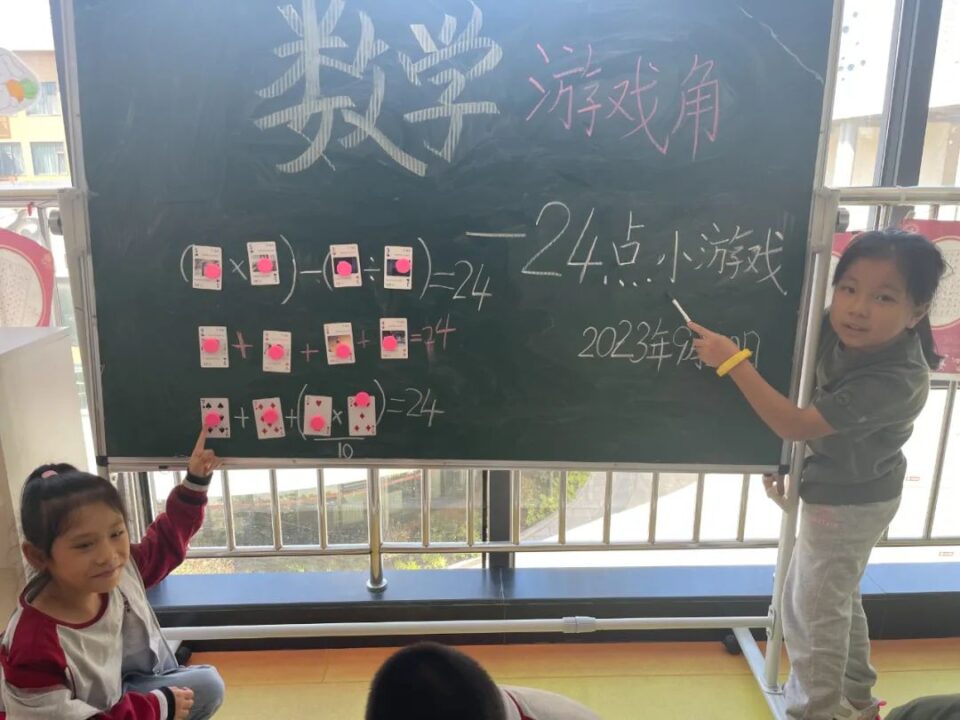 数学 游戏角
一24点小游戏
2023年9月
( × ) - ( ÷ ) = 24
+ + + = 24
+ + ( × ) = 24
10